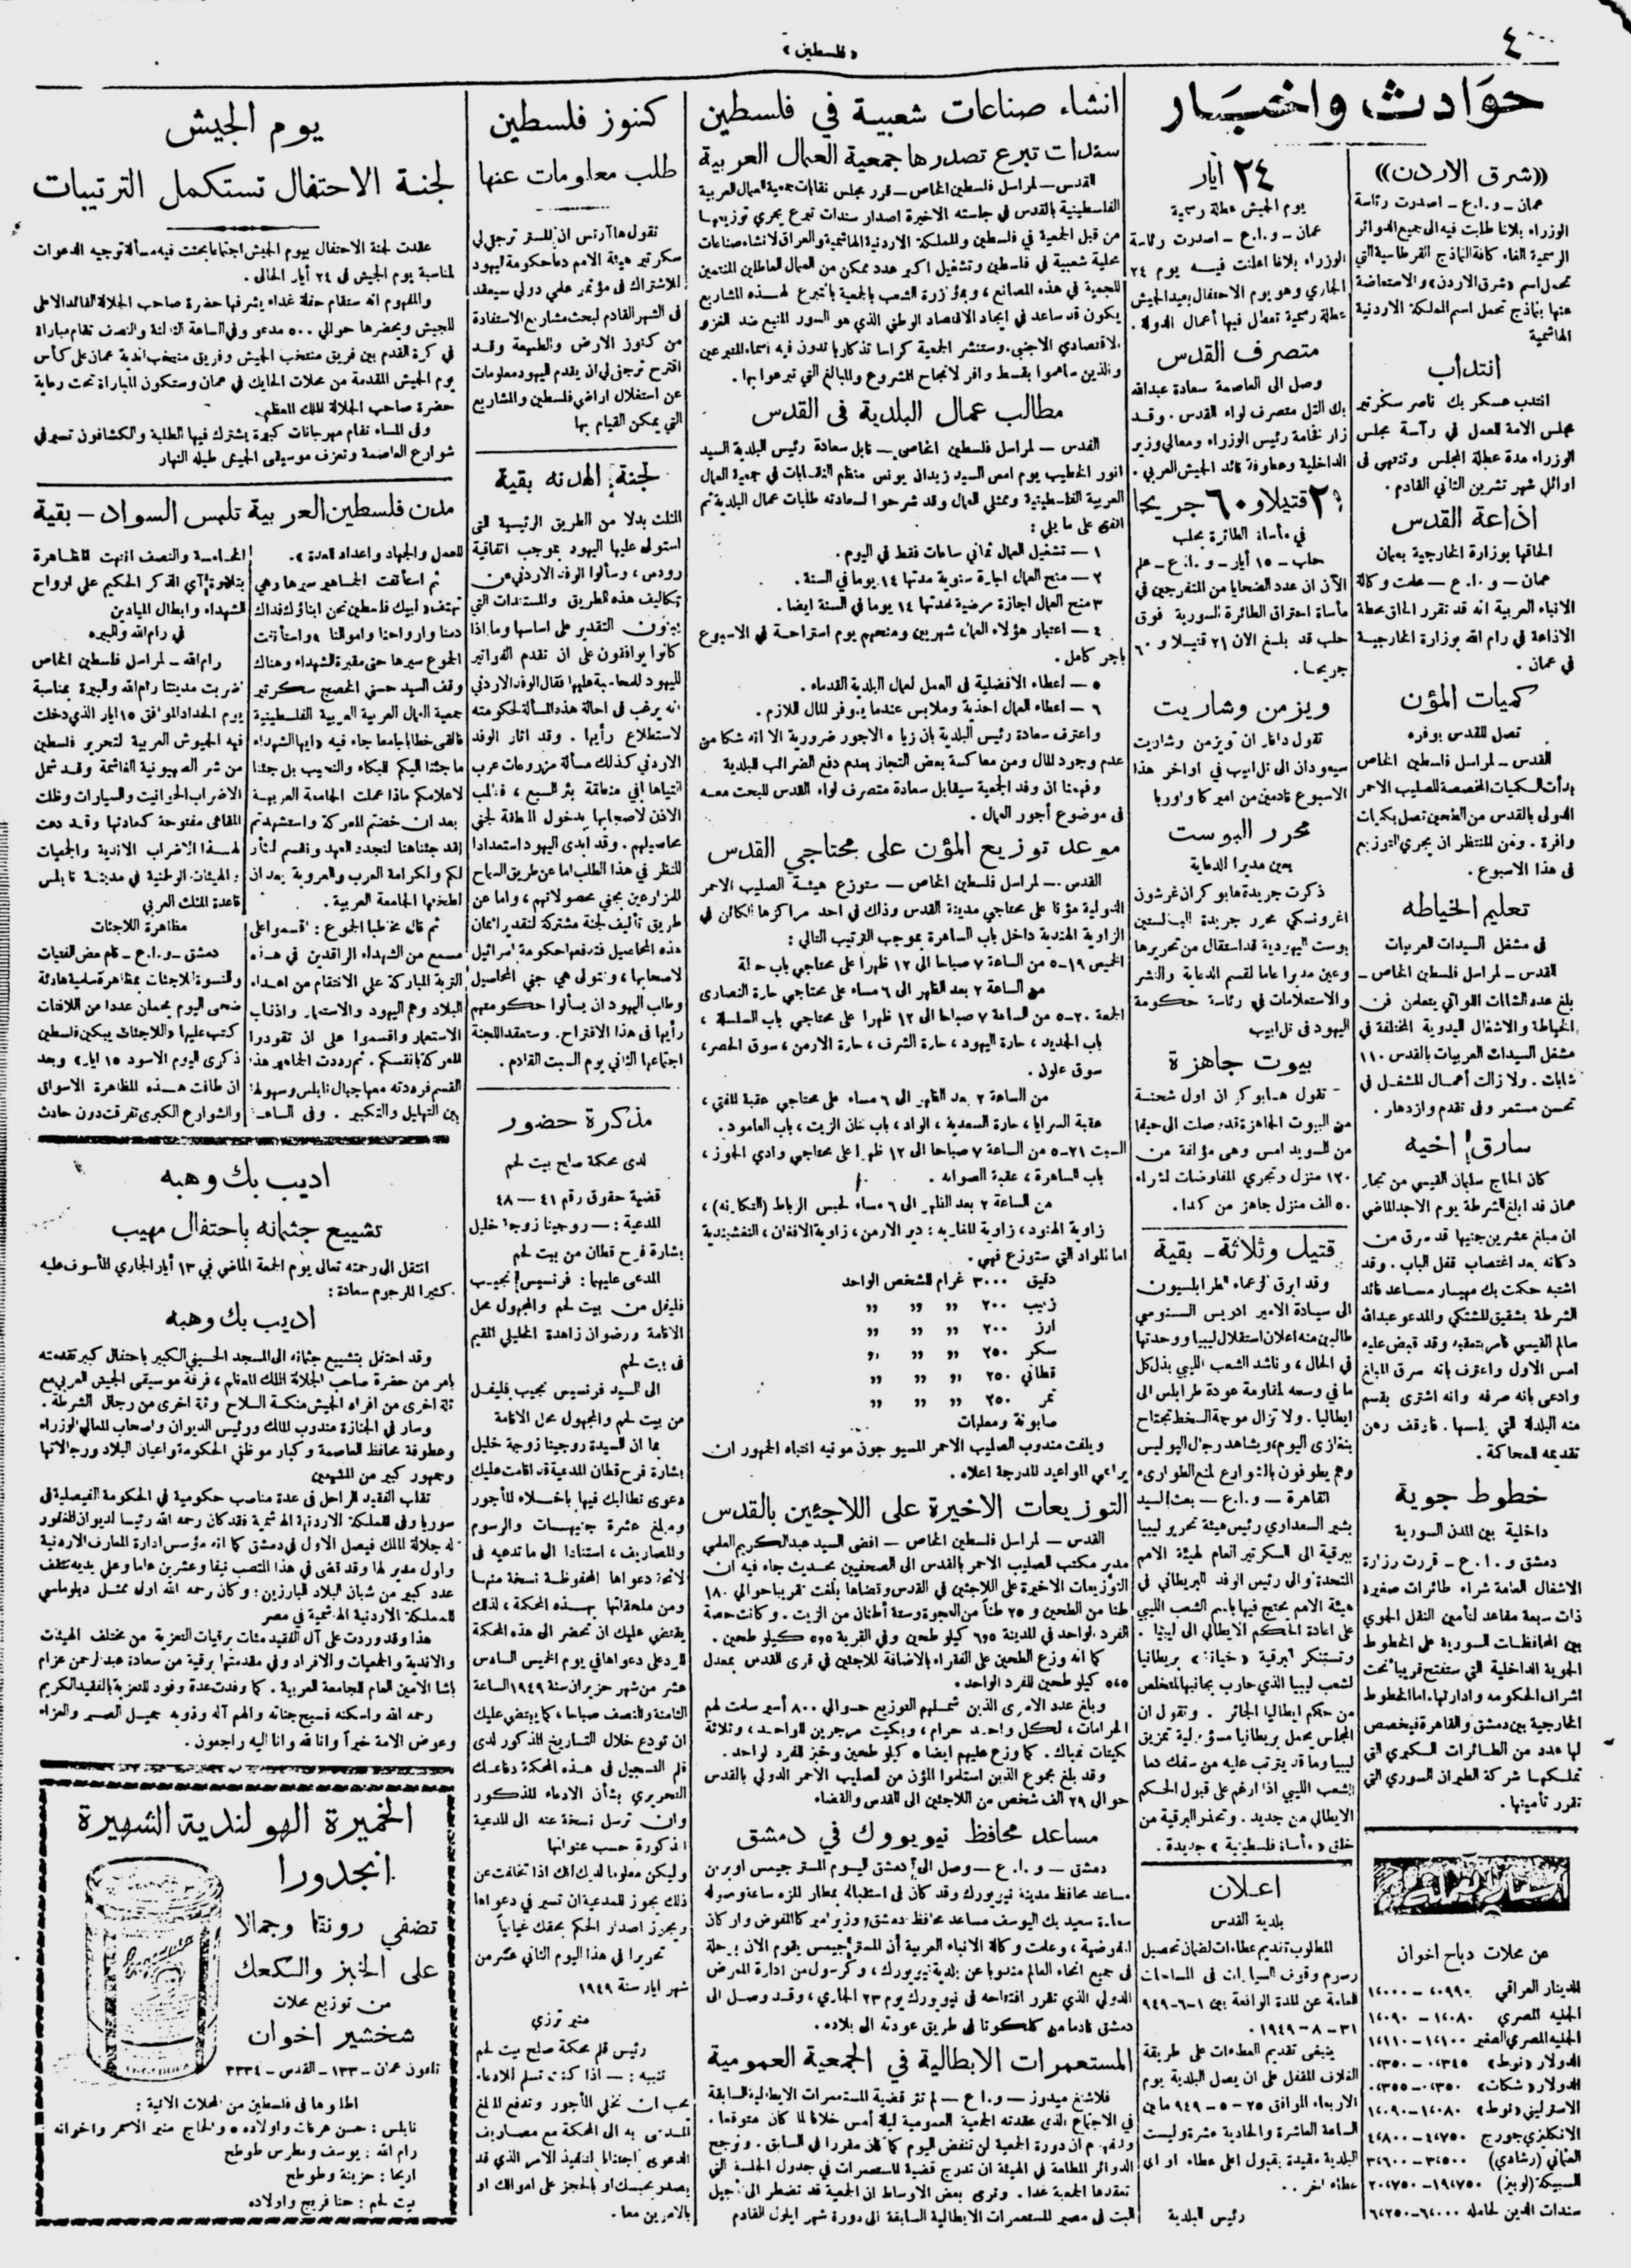 ٤
«فلسطين»
حوادث واخبار
«شرق الاردن»
عمان – و.ا.ع – اصدرت رئاسة
الوزراء بلاغا طلبت فيه الى جميع الدوائر
الرسمية الغاء كافة النماذج القرطاسية التي
تحمل اسم «شرق الاردن» والاستعاضة
عنها بنماذج تحمل اسم المملكة الاردنية
الهاشمية
انتداب
انتدب عسكر بك ناصر سكرتير
مجلس الامة للعمل في رآسة مجلس
الوزراء مدة عطلة المجلس وتنتهي في
اوائل شهر تشرين الثاني القادم .
اذاعة القدس
الحاقها بوزارة الخارجية بعمان
عمان – و.ا.ع – علمت وكالة
الانباء العربية انه قد تقرر الحاق محطة
الاذاعة في رام الله بوزارة الخارجية
في عمان .
كميات المؤن
تصل للقدس بوفره
القدس – لمراسل فلسطين الخاص
بدأت الكميات المخصصة للصليب الاحمر
الدولى بالقدس من الطحين تصل بكميات
وافرة . ومن المنتظر ان يجري التوزيع
في هذا الاسبوع .
تعليم الخياطه
في مشغل السيدات العربيات
القدس – لمراسل فلسطين الخاص –
بلغ عدد الشابات اللواتي يتعلمن فن
الخياطة والاشغال اليدوية المختلفة في
مشغل السيدات العربيات بالقدس ١١٠
شابات . ولا زالت أعمال المشغل في
تحسن مستمر وفي تقدم وازدهار .
سارق اخيه
كان الحاج سليمان القيسي من تجار
عمان قد ابلغ الشرطة يوم الاحد الماضي
ان مبلغ عشرين جنيها قد سرق من
دكانه بعد اغتصاب قفل الباب . وقد
اشتبه حكمت بك مهيار مساعد قائد
الشرطة بشقيق المشتكي والمدعو عبدالله
سالم القيسي فامر بتعقبه وقد قبض عليه
امس الاول واعترف بانه سرق المبلغ
وادعى بانه صرفه وانه اشترى بقسم
منه البدلة التي يلبسها . فاوقف رهن
تقديمه للمحاكمة .
خطوط جوية
داخلية بين المدن السورية
دمشق و.ا.ع – قررت وزارة
الاشغال العامة شراء طائرات صغيرة
ذات سبعة مقاعد لتأمين النقل الجوي
بين المحافظات السورية على الخطوط
الجوية الداخلية التي ستفتح قريبا تحت
اشراف الحكومه وادارتها . اما الخطوط
الخارجية بين دمشق والقاهرة فيخصص
لها عدد من الطائرات الكبرى التي
تملكها شركة الطيران السوري التي
تقرر تأميمها .
عن محلات دباح اخوان
الدينار العراقي
الجنيه المصري
الجنيه المصري الصغير
الدولار «نوط»
الدولار «شكات»
الاسترليني «نوط»
الانكليزي جورج
العثماني (رشادي)
السبيكة (لويز)
سندات الدين لحامله
٢٤ أيار
يوم الجيش عطلة رسمية
عمان – و.ا.ع – اصدرت رئاسة
الوزراء بلاغا اعلنت فيه يوم ٢٤
الجاري وهو يوم الاحتفال بعيد الجيش
عطلة رسمية تعطل فيها أعمال الدولة .
متصرف القدس
وصل الى العاصمة سعادة عبدالله
بك التل متصرف لواء القدس . وقد
زار فخامة رئيس الوزراء ومعالي وزير
الداخلية وعطوفة قائد الجيش العربي .
قتيلا و ٦٠ جريحا
في مأساة الطائرة بحلب
حلب – ١٥ أيار – و.ا.ع – علم
الآن ان عدد الضحايا من المتفرجين في
مأساة احتراق الطائرة السورية فوق
حلب قد بلغ الان ٢١ قتيلا و ٦٠
جريحا .
ويزمن وشاريت
تقول دافار ان ويزمن وشاريت
سيعودان الى تل ابيب في اواخر هذا
الاسبوع قادمين من اميركا واوربا
محرر البوست
يعين مديرا الدعاية
ذكرت جريدة هابوكر ان غرشون
اغرونسكي محرر جريدة البالستين
بوست اليهودية قد استقال من تحريرها
وعين مديرا عاما لقسم الدعاية والنشر
والاستعلامات في رئاسة حكومة
اليهود في تل ابيب
بيوت جاهزة
تقول هابوكر ان اول شحنة
من البيوت الجاهزة قد وصلت الى حيفا
من السويد امس وهي مؤلفة من
١٢٠ منزل وتجري المفاوضات لشراء
٥٠ الف منزل جاهز من كندا .
قتيل وثلاثة – بقية
وقد ابرق الزعماء الطرابلسيون
الى سيادة الامير ادريس السنوسي
طالبين منه اعلان استقلال ليبيا ووحدتها
في الحال ، وناشد الشعب الليبي بذل كل
ما في وسعه لمقاومة عودة طرابلس الى
ايطاليا . ولا تزال موجة السخط تجتاح
بنغازى اليوم ، ويشاهد رجال البوليس
وهم يطوفون بالشوارع لمنع الطوارىء
القاهرة – و.ا.ع – بعث السيد
بشير السعداوي رئيس هيئة تحرير ليبيا
ببرقية الى السكرتير العام لهيئة الامم
المتحدة والى رئيس الوفد البريطاني في
هيئة الامم يحتج فيها باسم الشعب الليبي
على اعادة الحكم الايطالي الى ليبيا .
وتستنكر البرقية «خيانة» بريطانيا
لشعب ليبيا الذي حارب بجانبها للتخلص
من حكم ايطاليا الجائر . وتقول ان
المجلس يحمل بريطانيا مسؤولية تمزيق
ليبيا وما قد يترتب عليه من سفك دما
الشعب الليبي اذا ارغم على قبول الحكم
الايطالي من جديد . وتحذر البرقية من
خلق «مأساة فلسطينية» جديدة .
اعلان
بلدية القدس
المطلوب تقديم عطاءات لضمان تحصيل
رسوم وقوف السيارات في الساحات
العامة عن المدة الواقعة بين ١-٦-٩٤٩
٣١-٨-١٩٤٩ .
ينبغي تقديم العطاءات على طريقة
الغلاف المقفل على ان يصل البلدية يوم
الاربعاء الموافق ٢٥-٥-٩٤٩ ما بين
الساعة العاشرة والحادية عشرة وليست
البلدية مقيدة بقبول اعلى عطاء او اي
عطاء اخر ..
رئيس البلدية
انشاء صناعات شعبية في فلسطين
سندات تبرع تصدرها جمعية العمال العربية
القدس – لمراسل فلسطين الخاص – قرر مجلس نقابات جمعية العمال العربية
الفلسطينية بالقدس في جلسته الاخيرة اصدار سندات تبرع يجري توزيعها
من قبل الجمعية في فلسطين والمملكة الاردنية الهاشمية والعراق لانشاء صناعات
محلية شعبية في فلسطين وتشغيل اكبر عدد ممكن من العمال العاطلين المنتمين
للجمعية في هذه المصانع ، وبمؤازرة الشعب بالجمعية بالتبرع لهذه المشاريع
يكون قد ساعد في ايجاد الاقتصاد الوطني الذي هو السور المنيع ضد الغزو
الاقتصادي الاجنبي . وستنشر الجمعية كراسا تذكاريا تدون فيه اسماء المتبرعين
والذين ساهموا بقسط وافر لانجاح المشروع والمبالغ التي تبرعوا بها .
مطالب عمال البلدية في القدس
القدس – لمراسل فلسطين الخاص – قابل سعادة رئيس البلدية السيد
انور الخطيب يوم امس السيد زيدان يونس منظم النقابات في جمعية العمال
العربية الفلسطينية وممثلي العمال وقد شرحوا لسعادته طلبات عمال البلدية ثم
اتفق على ما يلي :
١ – تشغيل العمال ثماني ساعات فقط في اليوم .
٢ – منح العمال اجازة سنوية مدتها ١٤ يوما في السنة .
٣ منح العمال اجازة مرضية لمدتها ١٤ يوما في السنة ايضا .
٤ – اعتبار هؤلاء العمال شهريين ومنحهم يوم استراحة في الاسبوع
باجر كامل .
٥ – اعطاء الافضلية في العمل لعمال البلدية القدماء .
٦ – اعطاء العمال احذية وملابس عندما يتوفر المال اللازم .
واعترف سعادة رئيس البلدية بان زيادة الاجور ضرورية الا انه شكا من
عدم وجود المال ومن معاكسة بعض التجار بعدم دفع الضرائب للبلدية
وفهمنا ان وفد الجمعية سيقابل سعادة متصرف لواء القدس للبحث معه
في موضوع أجور العمال .
موعد توزيع المؤن على محتاجي القدس
القدس – لمراسل فلسطين الخاص – ستوزع هيئة الصليب الاحمر
الدولية مؤنا على محتاجي مدينة القدس وذلك في احد مراكزها الكائن في
الزاوية الهندية داخل باب الساهرة بموجب الترتيب التالي :
الخميس ١٩-٥ من الساعة ٧ صباحا الى ١٢ ظهرا على محتاجي باب حطة
من الساعة ٢ بعد الظهر الى ٦ مساء على محتاجي حارة النصارى
الجمعة ٢٠-٥ من الساعة ٧ صباحا الى ١٢ ظهرا على محتاجي باب السلسلة ،
باب الجديد ، حارة اليهود ، حارة الشرف ، حارة الارمن ، سوق الحصر ،
سوق علون .
من الساعة ٢ بعد الظهر الى ٦ مساء على محتاجي عقبة المفتي ،
عقبة السرايا ، حارة السعدية ، الواد ، باب خان الزيت ، باب العامود .
السبت ٢١-٥ من الساعة ٧ صباحا الى ١٢ ظهرا على محتاجي وادي الجوز ،
باب الساهرة ، عقبة الصوانه .
من الساعة ٢ بعد الظهر الى ٦ مساء لحبس الرباط (التكارنه) ،
زاوية الهنود ، زاوية المغاربه ؛ دير الارمن ، زاوية الافغان ، النقشبندية
اما المواد التي ستوزع فهي .
دقيق ٣٠٠٠ غرام للشخص الواحد
زبيب ٢٠٠ ,, ,, ,,
ارز ٢٠٠ ,, ,, ,,
سكر ٢٥٠ ,, ,, ,,
قطاني ٢٥٠ ,, ,, ,,
تمر ٢٥٠ ,, ,, ,,
صابونة ومعلبات
ويلفت مندوب الصليب الاحمر المسيو جون مونيه انتباه الجمهور ان
يراعي المواعيد المدرجة اعلاه .
التوزيعات الاخيرة على اللاجئين بالقدس
القدس – لمراسل فلسطين الخاص – افضى السيد عبدالكريم العلمي
مدير مكتب الصليب الاحمر بالقدس الى الصحفيين بحديث جاء فيه ان
التوزيعات الاخيرة على اللاجئين في القدس وقضاها بلغت تقريبا حوالي ١٨٠
طنا من الطحين و ٢٥ طناً من العجوة وستة أطنان من الزيت . وكانت حصة
الفرد الواحد في المدينة ٦,٥ كيلو طحين وفي القرية ٥,٥ كيلو طحين .
كما انه وزع الطحين على الفقراء بالاضافة للاجئين في قرى القدس بمعدل
٥,٥ كيلو طحين للفرد الواحد .
وبلغ عدد الاسرى الذين شملهم التوزيع حوالي ٨٠٠ أسير سلمت لهم
الحرامات ، لكل واحد حرام ، وبكيت مرجرين للواحد ، وثلاثة
بكيتات تمباك . كما وزع عليهم ايضا ٥ كيلو طحين وخبز للفرد الواحد .
وقد بلغ مجموع الذين استلموا المؤن من الصليب الاحمر الدولي بالقدس
حوالى ٢٩ الف شخص من اللاجئين الى القدس والقضاء
مساعد محافظ نيويورك في دمشق
دمشق – و.ا.ع – وصل الى دمشق اليوم المستر جيمس اوبرين
مساعد محافظ مدينة نيويورك وقد كان في استقباله بمطار المزه ساعة وصوله
سعادة سعيد بك اليوسف مساعد محافظ دمشق ووزير اميركا المفوض واركان
المفوضية ، وعلمت وكالة الانباء العربية أن المستر جيمس يقوم الان برحلة
في جميع انحاء العالم مندوبا عن بلدية نيويورك ، وكرسول من ادارة المعرض
الدولي الذي تقرر افتتاحه في نيويورك يوم ٢٣ الجاري ، وقد وصل الى
دمشق قادما من كلكوتا في طريق عودته الى بلاده .
المستعمرات الايطالية في الجمعية العمومية
فلاشنغ ميدوز – و.ا.ع – لم تثر قضية المستعمرات الايطالية السابقة
في الاجتماع الذي عقدته الجمعية العمومية ليلة أمس خلافا لما كان متوقعا .
ويفهم ان دورة الجمعية لن تنفض اليوم كما كان مقررا في السابق . وترجح
الدوائر المطلعة في الهيئة ان تدرج قضية المستعمرات في جدول الجلسة التي
تعقدها الجمعية غدا . وترى بعض الاوساط ان الجمعية قد تضطر الى تأجيل
البت في مصير المستعمرات الايطالية السابقة الى دورة شهر ايلول القادم
كنوز فلسطين
طلب معلومات عنها
تقول هاآرتس ان المستر ترجفي لي
سكرتير هيئة الامم دعا حكومة اليهود
للاشتراك في مؤتمر علمي دولي سيعقد
في الشهر القادم لبحث مشاريع الاستفادة
من كنوز الارض والطبيعة وقد
اقترح ترجفي لي ان يقدم اليهود معلومات
عن استغلال اراضي فلسطين والمشاريع
التي يمكن القيام بها
لجنة الهدنه بقية
المثلث بدلا من الطريق الرئيسية التي
استولى عليها اليهود بموجب اتفاقية
رودس ، وسألوا الوفد الاردني عن
تكاليف هذه الطريق والمستندات التي
يبنون التقدير على اساسها وما اذا
كانوا يوافقون على ان تقدم الفواتير
لليهود للمحاسبة عليها فقال الوفد الاردني
انه يرغب في احالة هذه المسألة لحكومته
لاستطلاع رأيها . وقد اثار الوفد
الاردني كذلك مسألة مزروعات عرب
التياها في منطقة بئر السبع ، فطلب
الاذن لاصحابها بدخول المنطقة لجني
محاصيلهم . وقد ابدى اليهود استعدادا
للنظر في هذا الطلب اما عن طريق السماح
للمزارعين بجني محصولاتهم ، واما عن
طريق تأليف لجنة مشتركة لتقدير اثمان
هذه المحاصيل فتدفعها حكومة اسرائيل
لاصحابها ، وتتولى هي جني المحاصيل
وطلب اليهود ان يسألوا حكومتهم
رأيها في هذا الاقتراح . وستعقد اللجنة
اجتماعها الثاني يوم السبت القادم .
مذكرة حضور
لدى محكمة صلح بيت لحم
قضية حقوق رقم ٤١ – ٤٨
المدعية : – روجينا زوجة خليل
بشارة فرح قطان من بيت لحم
المدعى عليهما : فرنسيس نجيب
فليفل من بيت لحم والمجهول محل
الاقامة ورضوان زاهدة الخليلي المقيم
في بيت لحم
الى السيد فرنسيس نجيب فليفل
من بيت لحم والمجهول محل الاقامة
بما ان السيدة روجينا زوجة خليل
بشارة فرح قطان المدعية قد اقامت عليك
دعوى تطالبك فيها باخلاء المأجور
ومبلغ عشرة جنيهات والرسوم
والمصاريف ، استنادا الى ما تدعيه في
لائحة دعواها المحفوظة نسخة منها
ومن ملحقاتها بهذه المحكمة ، لذلك
يقتضي عليك ان تحضر الى هذه المحكمة
للرد على دعواها في يوم الخميس السادس
عشر من شهر حزيران سنة ١٩٤٩ الساعة
الثامنة والنصف صباحا ، كما يقتضي عليك
ان تودع خلال التاريخ المذكور لدى
قلم التسجيل في هذه المحكمة دفاعك
التحريري بشأن الادعاء المذكور
وان ترسل نسخة عنه الى المدعية
المذكورة حسب عنوانها
وليكن معلوما لديك انك اذا تخلفت عن
ذلك يجوز للمدعية ان تسير في دعواها
ويجوز اصدار الحكم بحقك غيابياً
تحريرا في هذا اليوم الثاني عشر من
شهر ايار سنة ١٩٤٩
منير ترزي
رئيس قلم محكمة صلح بيت لحم
تنبيه : – اذا كنت تسلم للادعاء
يجب ان تخلي المأجور وتدفع المبلغ
المدعى به الى المحكمة مع مصاريف
الدعوى اجتنابا لتنفيذ الامر الذي قد
يصدر بحبسك او بالحجز على اموالك او
بالامرين معا .
يوم الجيش
لجنة الاحتفال تستكمل الترتيبات
عقدت لجنة الاحتفال بيوم الجيش اجتماعا بحثت فيه مسألة توجيه الدعوات
لمناسبة يوم الجيش في ٢٤ أيار الحالى .
والمفهوم انه ستقام حفلة غداء يشرفها حضرة صاحب الجلالة القائد الاعلى
للجيش ويحضرها حوالي ٥٠٠ مدعو وفي الساعة الثالثة والنصف تقام مباراة
في كرة القدم بين فريق منتخب الجيش وفريق منتخب اندية عمان على كأس
يوم الجيش المقدمة من محلات الحايك في عمان وستكون المباراة تحت رعاية
حضرة صاحب الجلالة الملك المعظم .
وفى المساء تقام مهرجانات كبيرة يشترك فيها الطلبة والكشافون تسير في
شوارع العاصمة وتعزف موسيقى الجيش طيله النهار
مدن فلسطين العربية تلبس السواد – بقية
للعمل والجهاد واعداد العدة» .
ثم استأنفت الجماهير سيرها وهي
تهتف «لبيك فلسطين نحن ابناؤك فداك
دمنا وارواحنا واموالنا» واستأنفت
الجموع سيرها حتى مقبرة الشهداء وهناك
وقف السيد حسني الخصيح سكرتير
جمعية العمال العربية العربية الفلسطينية
فالقى خطابا جامعا جاء فيه «ايها الشهداء
ما جئنا اليكم للبكاء والنحيب بل جئنا
لاعلامكم ماذا عملت الجامعة العربية
بعد ان خضتم المعركة واستشهدتم
لقد جئناهنا لنجدد العهد ونقسم لنثأر
لكم ولكرامة العرب والعروبة بعد ان
لطختها الجامعة العربية .
ثم قال مخاطبا الجموع : «اقسموا على
مسمع من الشهداء الراقدين في هذه
التربة المباركة على الانتقام من اعداء
البلاد وهم اليهود والاستعمار واذناب
الاستعمار واقسموا على ان تقودوا
المعركة بانفسكم . ثم رددت الجماهير هذا
القسم فرددته معها جبال نابلس وسهولها
بين التهليل والتكبير . وفى الساعة
الخامسة والنصف انتهت المظاهرة
بتلاوة آي الذكر الحكيم على ارواح
الشهداء وابطال الميادين
في رام الله والبيره
رام الله – لمراسل فلسطين الخاص
اضربت مدينتا رام الله والبيرة بمناسبة
يوم الحداد الموافق ١٥ ايار الذي دخلت
فيه الجيوش العربية لتحرير فلسطين
من شر الصهيونية الغاشمة وقد شمل
الاضراب الحوانيت والسيارات وظلت
المقاهي مفتوحة كعادتها وقد دعت
لهذا الاضراب الاندية والجمعيات
والهيئات الوطنية في مدينة نابلس
قاعدة المثلث العربي
مظاهرة اللاجئات
دمشق – و.ا.ع – قام بعض الفتيات
والنسوة اللاجئات بمظاهرة سلمية هادئة
ضحى اليوم يحملن عددا من اللافتات
كتب عليها «اللاجئات يبكين فلسطين
ذكرى اليوم الاسود ١٥ ايار» وبعد
ان طافت هذه المظاهرة الاسواق
والشوارع الكبرى تفرقت دون حادث
اديب بك وهبه
تشييع جثمانه باحتفال مهيب
انتقل الى رحمته تعالى يوم الجمعة الماضي في ١٣ أيار الجاري المأسوف عليه
كثيرا المرحوم سعادة :
اديب بك وهبه
وقد احتفل بتشييع جثمانه الى المسجد الحسيني الكبير باحتفال كبير تقدمته
بامر من حضرة صاحب الجلالة الملك المعظم ، فرقة موسيقى الجيش العربي مع
ثلة اخرى من افراد الجيش منكسة السلاح وثلة اخرى من رجال الشرطة .
وسار في الجنازة مندوب الملك ورئيس الديوان واصحاب المعالي الوزراء
وعطوفة محافظ العاصمة وكبار موظفي الحكومة واعيان البلاد ورجالاتها
وجمهور كبير من المشيعين
تقلب الفقيد الراحل في عدة مناصب حكومية في الحكومة الفيصلية في
سوريا وفي المملكة الاردنية الهاشمية فقد كان رحمه الله رئيسا لديوان المغفور
له جلالة الملك فيصل الاول في دمشق كما انه مؤسس ادارة المعارف الاردنية
واول مدير لها وقد قضى في هذا المنصب نيفا وعشرين عاما وعلى يديه تثقف
عدد كبير من شبان البلاد البارزين ؛ وكان رحمه الله اول ممثل دبلوماسي
للمملكة الاردنية الهاشمية في مصر
هذا وقد وردت على آل الفقيد مئات برقيات التعزية من مختلف الهيئات
والاندية والجمعيات والافراد وفي مقدمتها برقية من سعادة عبد الرحمن عزام
باشا الامين العام للجامعة العربية . كما وفدت عدة وفود للتعزية بالفقيد الكريم
رحمه الله واسكنه فسيح جنانه والهم آله وذويه جميل الصبر والعزاء
وعوض الامة خيراً وانا لله وانا اليه راجعون .
الخميرة الهولندية الشهيرة
انجدورا
تضفي رونقا وجمالا
على الخبز والكعك
من توزيع محلات
شخشير اخوان
تلفون عمان – ١٣٣ – القدس – ٣٣٣٤
اطلبوها في فلسطين من المحلات الاتية :
نابلس : حسن عرفات واولاده ، والحاج منير الاسمر واخوانه
رام الله : يوسف ومطرس طوطح
اريحا : حزينة وطوطح
بيت لحم : حنا فريج واولاده